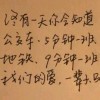 没有一天你会知道
公交车,5分钟一班
地铁,9分钟一班
我们的爱,一辈子